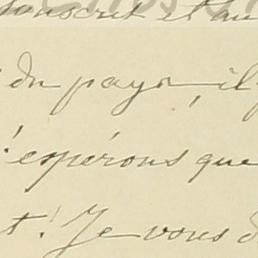 souscrit et au
du pays, il
espérons que
t! Je vous d